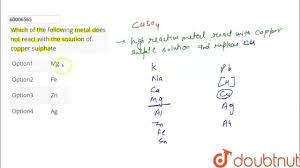 60006565
Which of the following metal does
not react with the solution of
copper sulphate
Option1 Mg
Option2 Fe
Option3 Zn
Option4 Ag
CuSO4
→ High reactive metal react with copper
solution and replace Cu
K Pb
Na [H]
Ca Cu
Mg Ag
Al
Zn Au
Fe
Sn
doubtnut